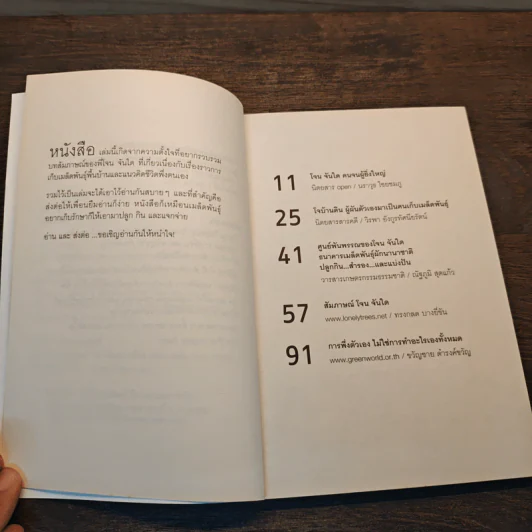 หนังสือ เล่มนี้เกิดจากความตั้งใจที่อยากรวบรวม
บทสัมภาษณ์ของพี่โจน จันใด ที่เกี่ยวเนื่องกับเรื่องราวการ
เก็บเมล็ดพันธุ์พื้นบ้านและแนวคิดชีวิตพึ่งตนเอง
รวมไว้เป็นเล่มจะได้เอาไว้อ่านกันสบายๆ และที่สำคัญคือ
ส่งต่อให้เพื่อนยืมอ่านก็ง่าย หนังสือก็เหมือนเมล็ดพันธุ์
อยากเก็บรักษาก็ให้เอามาปลูก กิน และแจกจ่าย
อ่าน และ ส่งต่อ ...ขอเชิญอ่านกันให้หนำใจ!
11 โจน จันใด คนจนผู้ยิ่งใหญ่
นิตยสาร open / นราวุธ ไชยชมภู
25 โจบ้านดิน ผู้ผันตัวเองมาเป็นคนเก็บเมล็ดพันธุ์
นิตยสารสารคดี / วีรพา อังกูรทัศนียรัตน์
41 ศูนย์พันพรรณของโจน จันใด
ธนาคารเมล็ดพันธุ์ผักนานาชาติ
ปลูกกิน...สำรอง...และแบ่งปัน
วารสารเกษตรกรรมธรรมชาติ / ณัฐภูมิ สุดแก้ว
57 สัมภาษณ์ โจน จันใด
www.lonelytrees.net / ทรงกลด บางยี่ขัน
91 การพึ่งตัวเอง ไม่ใช่การทำอะไรเองทั้งหมด
www.greenworld.or.th / ขวัญชาย ดำรงค์ขวัญ